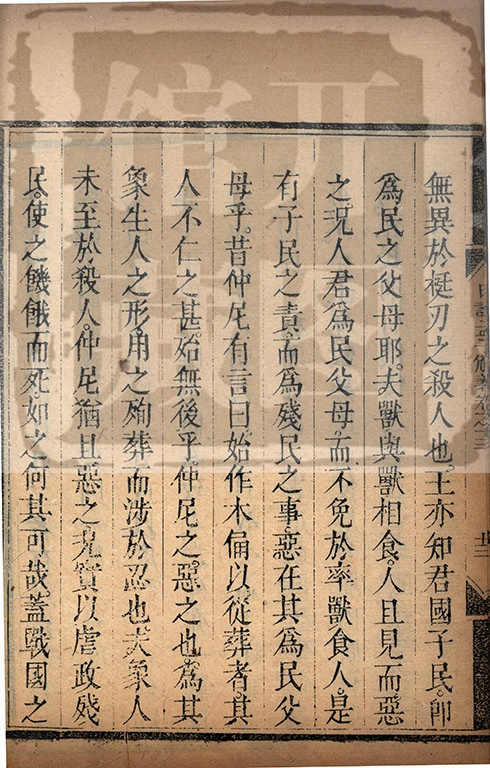 無異於梃刃之殺人也。王亦知君國子民。即
爲民之父母耶。夫獸與獸相食。人且見而惡
之。况人君爲民父母。而不免於率獸食人。是
有子民之責。而爲殘民之事。惡在其爲民父
母乎。昔仲尼有言曰。始作木俑以從葬者。其
人不仁之甚。始無後乎。仲尼之惡之也。為其
象生人之形。用之殉葬而涉於忍也。夫象人
未至於殺人。仲尼猶且惡之。况實以虐政殘
民。使之饑餓而死。如之何其可哉。蓋戰國之
日講四書解義卷之十三